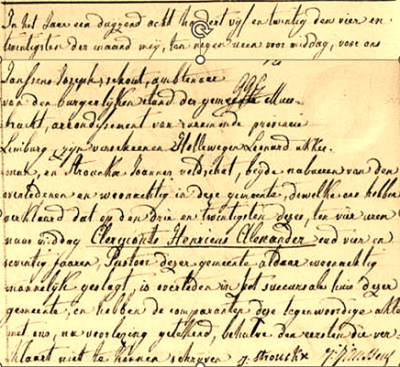 In het Jaar een duyzend acht hondert vijf en twintig den vier en
twintigsten der maand meij, ten negen uren voor middag, voor ons
Janssens Joseph, schout, ambtenaer
van den burgerlijken stand der gemeente Mees-
, arrondissement van roermonde provincie
Limburg, zijn verscheenen Hollewegen Leonard
man, en Strouckx Joannes veldschet, beyde nabueren van den
overledenen en woonachtig in deze gemeente, dewelke ons hebben
verklaard dat op den drie en twintigsten dezer, ten vier uren
naar middag Clercyconts Henricus Alexander oud vier en
seventig jaaren, Pastoor dezer gemeente aldaer woonachtig
mannelijk geslagt, is overleden in het succursale huis dezer
gemeente, en hebben de comparanten deze tegenwoordige akte
met ons, na voorlezing getekend, behalve den eersten die ver-
klaart niet te kennen schryven J. Strouckx J. Janssens